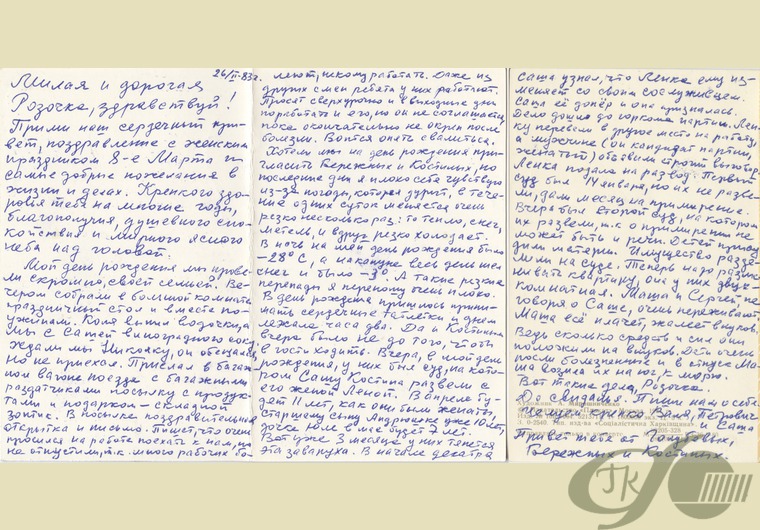 26/II-83г.
Милая и дорогая
Розочка, здравствуй!
Прими наш сердечный при-
вет, поздравление с женским
праздником 8-е Марта и
самые добрые пожелания в
жизни и делах. Крепкого здо-
ровья тебе на многие годы,
благополучия, душевного спо-
койствия и мирного ясного
неба над головой.
Мой день рождения мы прове-
ли скромно, своей семьёй. Ве-
чером собрали в большой комнате
праздничный стол и вместе по-
ужинали. Коля выпил водочки, а
мы с Сашей виноградного сока.
Ждали мы Николку, он обещался,
но не приехал. Прислал в багаж-
ном вагоне поезда с багажными
раздатчиками посылку с продук-
тами и подарком - складной
зонтик. В посылке поздравительная
открытка и письмо. Пишет, что очень
просился на работе поехать к нам, но
не отпустили, т.к. много рабочих бо-
леют, некому работать. Даже из
других смен ребята у них работают.
Просят сверхурочно и в выходные дни
поработать и его, но он не соглашается,
пока окончательно не окреп после
болезни. Боится опять свалиться.
Хотели мы на день рождения при-
гласить Бережных и Костиных, но
последние дни я плохо себя чувствую
из-за погоды, которая дурит, в тече-
ние одних суток меняется очень
резко несколько раз: то тепло, снег,
метель, и вдруг резко холодает.
В ночь на мой день рождения было
-28°C, а накануне весь день шёл
снег и было -3°. А такие резкие
перепады я переношу очень плохо.
В день рождения пришлось прини-
мать сердечные таблетки и даже
лежала часа два. Да и Костиным
вчера было не до того, чтоб
в гости ходить. Вчера, в мой день
рождения, у них был суд, на кото-
ром Сашу Костина развели с
его женой Леной. В апреле бу-
дет 11 лет, как они были женаты.
Старшему сыну Андрюшке уже 10 лет,
дочке Юле в мае будет 7 лет.
Вот уже 3 месяца у них тянется
эта заваруха. В начале декабря
Саша узнал, что Ленка ему из-
меняет со своим сослуживцем.
Саша её допёр и она призналась.
Дело дошло до горкома партии. Лен-
ку перевели в другое место на работу,
а мужчине (он кандидат партии,
женатый) объявили строгий выговор.
Ленка подала на развод. Первый
суд был 14 января, но их не разве-
ли, дали месяц на примирение.
Вчера был второй суд, на котором
их развели, т.к. о примирении не
может быть и речи. Детей прису-
дили матери. Имущество разде-
лили на суде. Теперь надо разме-
нивать квартиру, она у них двух-
комнатная. Маша и Сергей, не
говоря о Саше, очень переживают.
Маша всё плачет, жалеет внуков.
Ведь сколько средств и сил они
положили на внуков. Дети очень
росли болезненные и в отпуск Ма-
ша возила их на юг, к морю.
Вот такие дела, Розочка.
До свидания. Пиши нам о себе.
Целуем крепко Валя, Петрович
и Саша
З. 0-2540. Тип. изд-ва «Соціалістична Харківщина».
205-328
Привет тебе от Голубовых,
Бережных и Костиных.
ГК